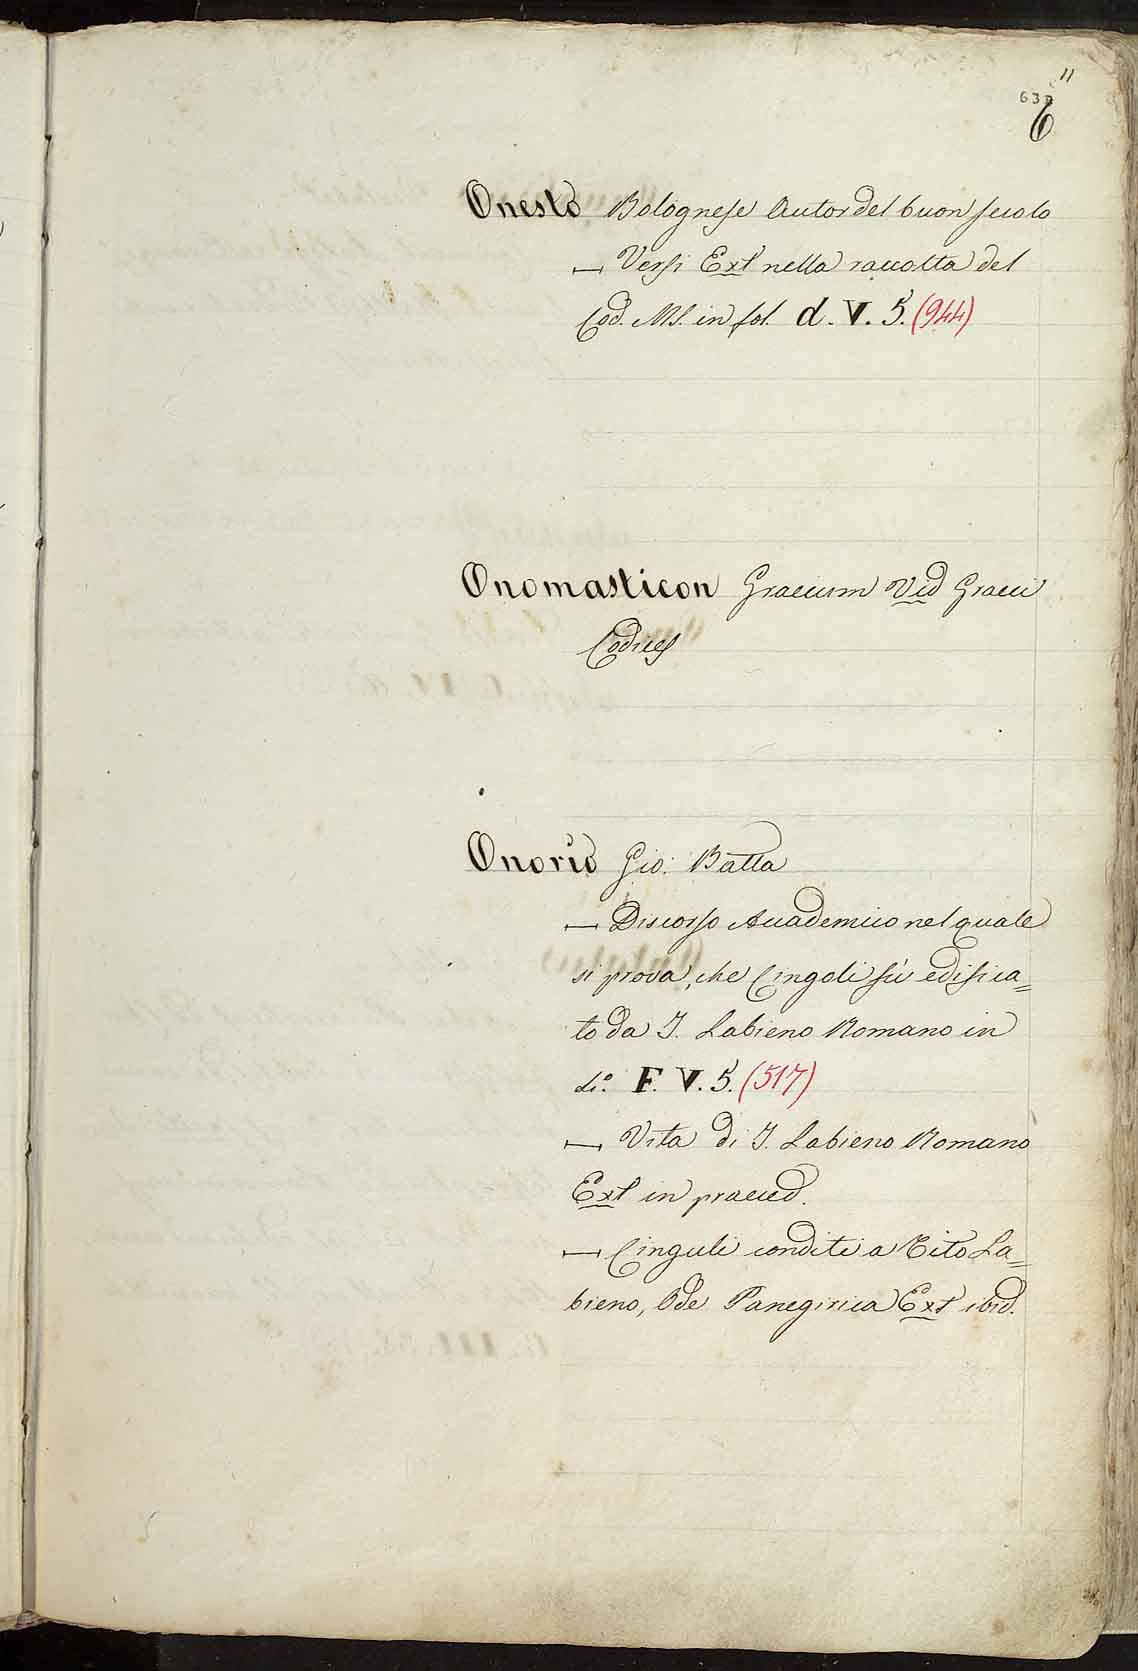 11
630
6
Onesto Bolognese Autor del buon secolo
— Versi Ext nella raccolta del
Cod. MS. in fol. d. V. 5. (944)
Onomasticon Graecum Vid Graeci
Codices
Onorio Gio: Batta
— Discorso Accademico nel quale
si prova, che Cingoli fù edifica=
to da T. Labieno Romano in
di.º F. V. 5. (517)
— Vita di T. Labieno Romano
Ext in praeced.
— Cinguli conditi a Tito La=
bieno, Ode Panegirica Ext ibid.